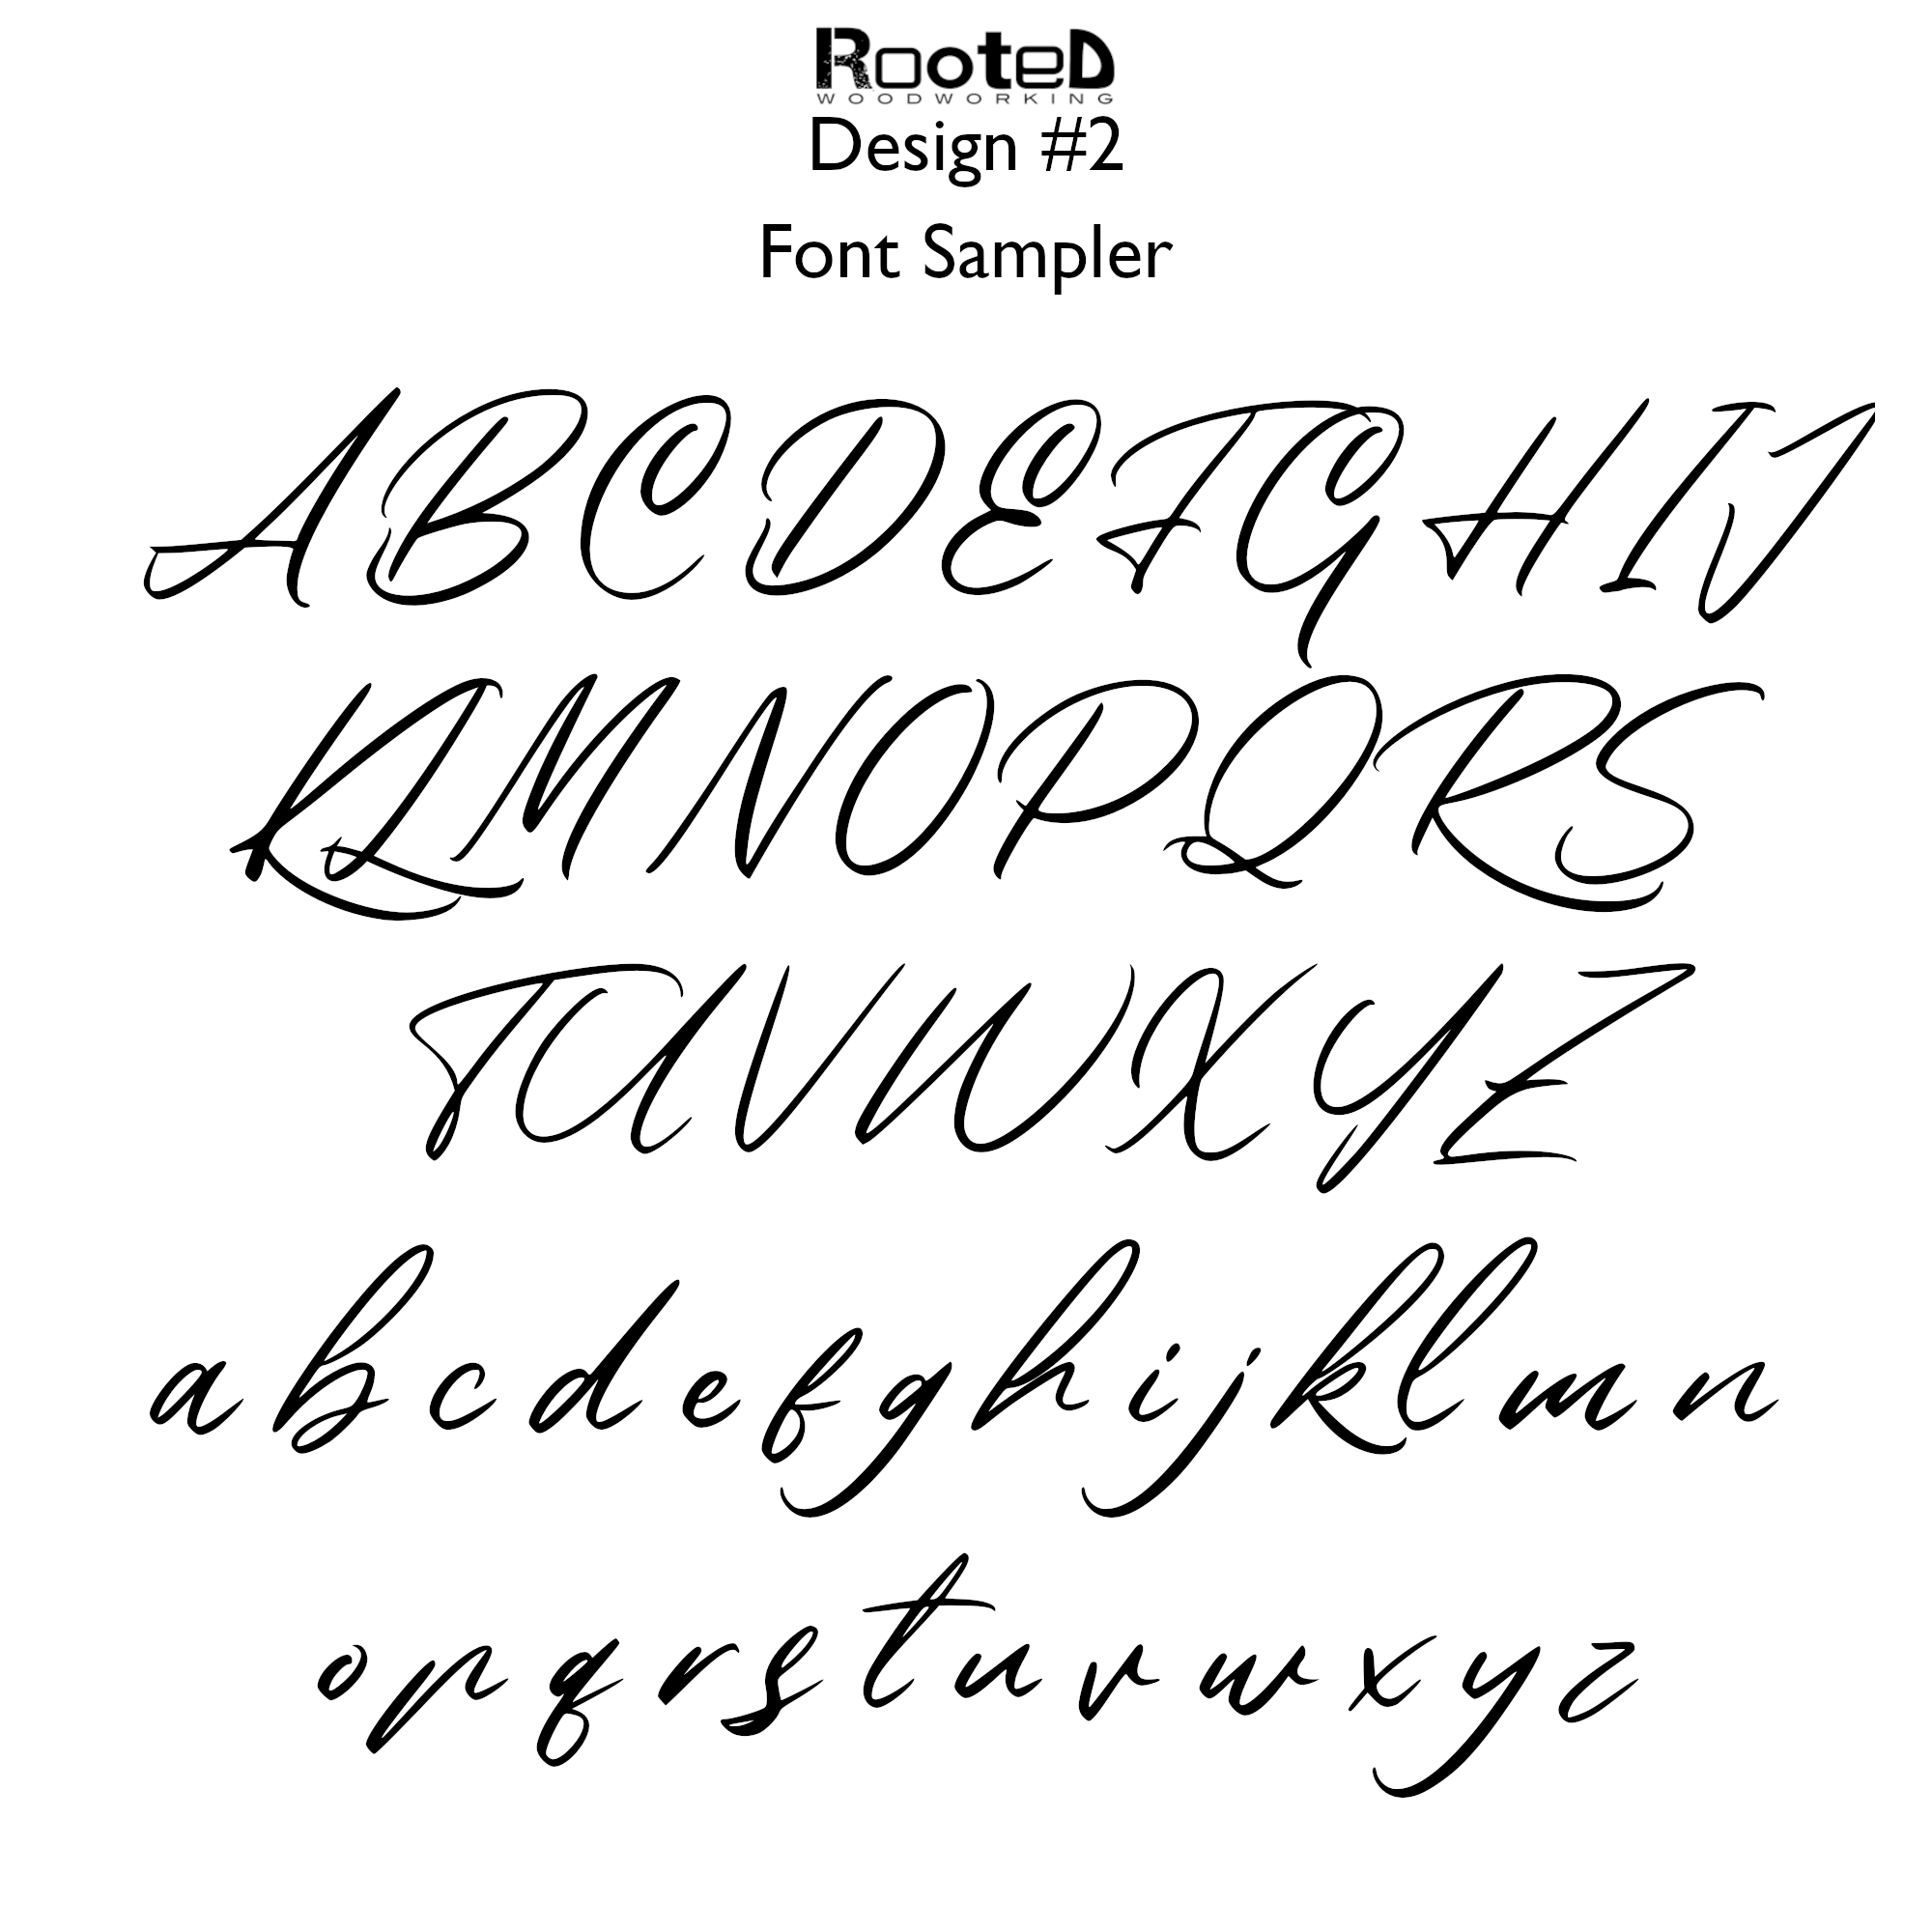 RooteD
WOODWORKING
Design #2
Font Sampler
A B C D E F G H I J
K L M N O P Q R S
T U V W X Y Z
a b c d e f g h i j k l m n
o p q r s t u v w x y z